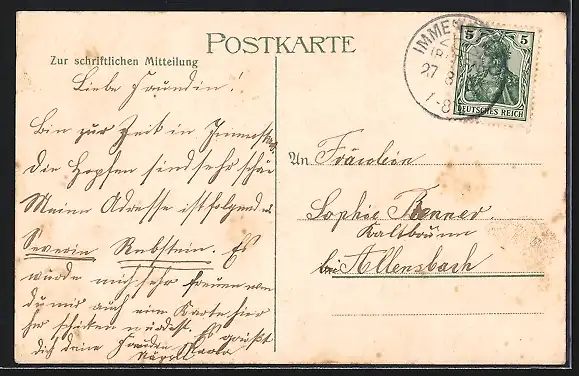 POSTKARTE
Zur schriftlichen Mitteilung
Liebe Freundin!
Bin zur Zeit in
Die Hopfen sind sehr schön
Meine Adresse ist folgend
Severin Rebstein. Es
würde mich sehr freuen wenn
du mir auch eine Karte hier
her schicken würdest. Es grüßt
dich deine Freundin
IMMEN
27 8
7-8
5 5
DEUTSCHES REICH
An Fräulein
Sophie Benner
Kaltbrunn
bei Allensbach